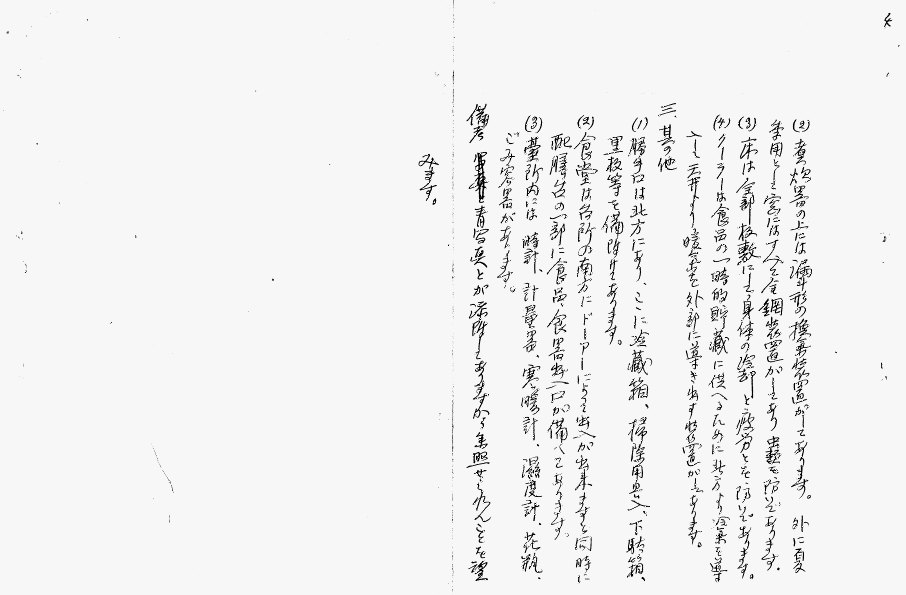 4
(2) 煮炊器の上には漏斗形の換気装置がしてあります。外に夏
季用として窓にはすべて金網装置がしてあり虫類を防いであります。
(3) 床は全部板敷にして身体の冷却と疲労とを防いであります。
(4) クーラーは食品の一時的貯蔵に供へるために北方より冷気を導
入して天井より暖気を外部に導き出す装置がしてあります。
三、其の他
(1) 勝手口は北方にあり、こゝに冷蔵箱、掃除用具入、下駄箱、
黒板等を備附けてあります。
(2) 食堂は台所の南方にドーアーによって出入が出来ますと同時に
配膳台の一部に食品、食器出入口が備へてあります。
(3) 台所内には時計、計量器、寒暖計、湿度計、花瓶、
ごみ容器があります。
備考 青写真とが添附してありますから参照せられんことを望
みます。